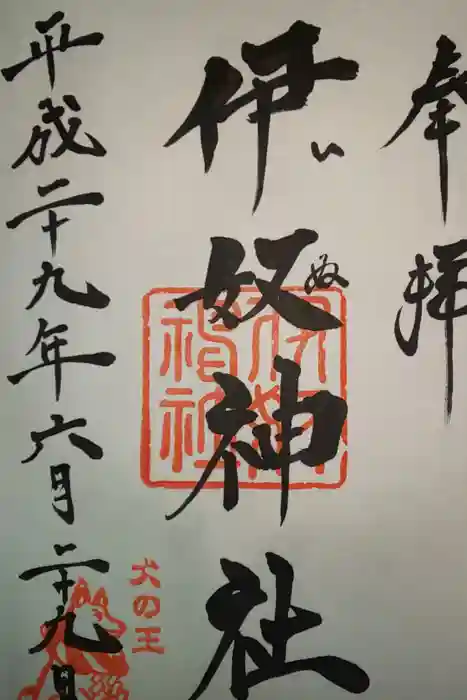 奉拝
伊奴神社
いぬ
伊奴神社
平成二十九年六月二十九日
犬の王